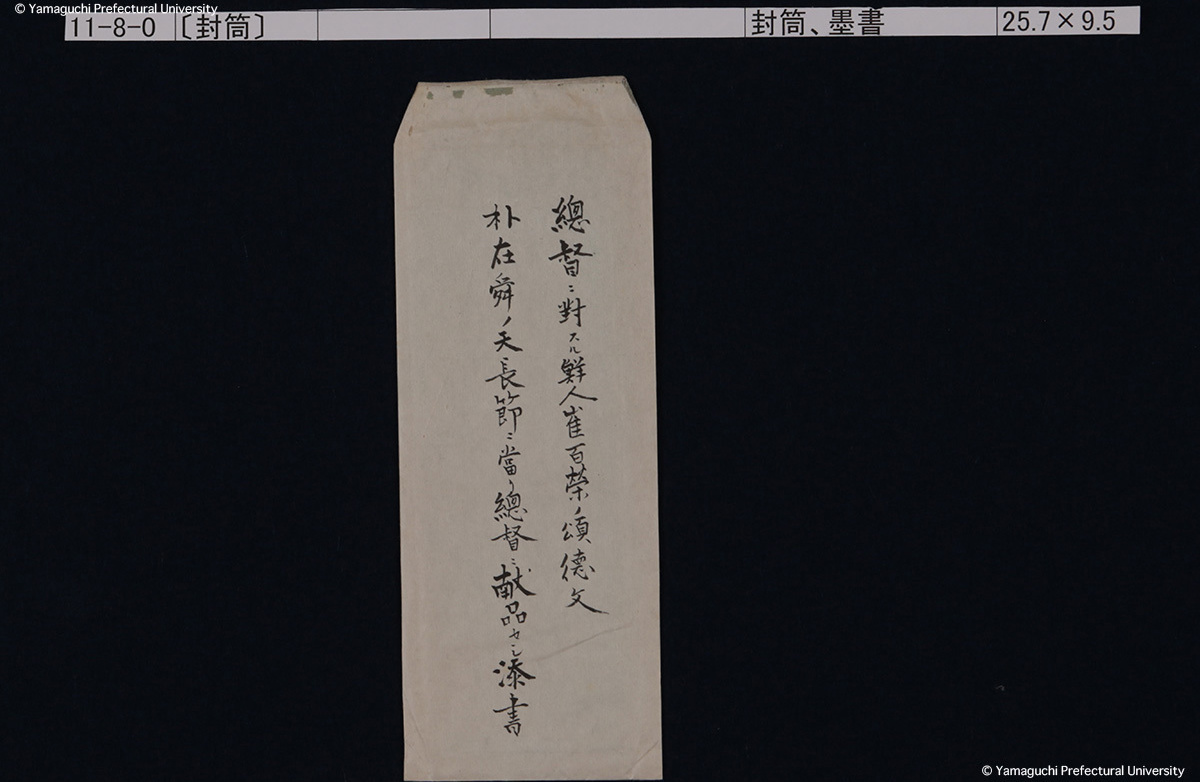 © Yamaguchi Prefectural University
11-8-0 〔封筒〕 封筒、墨書 25.7×9.5
總督ニ對スル鮮人崔百榮ノ頌德文
朴在舜ノ天長節ニ當リ總督ニ献品セシ添書
© Yamaguchi Prefectural University